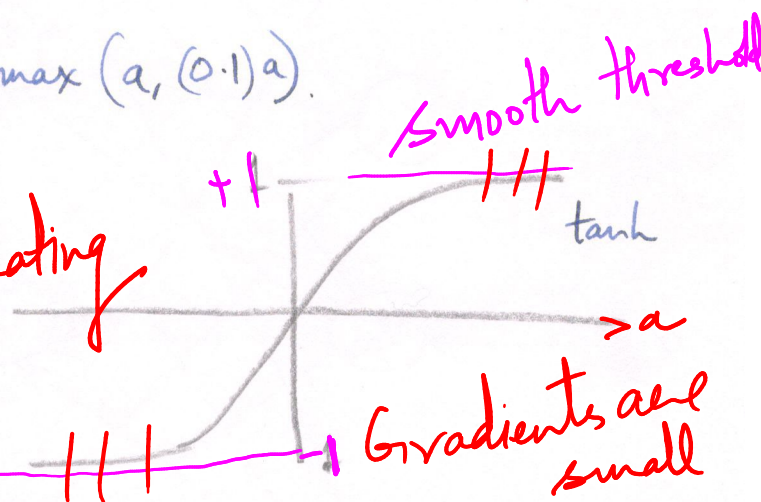 max (a, (0.1)a).
smooth threshold
+1
tanh
ating
> a
-1
Gradients are
small